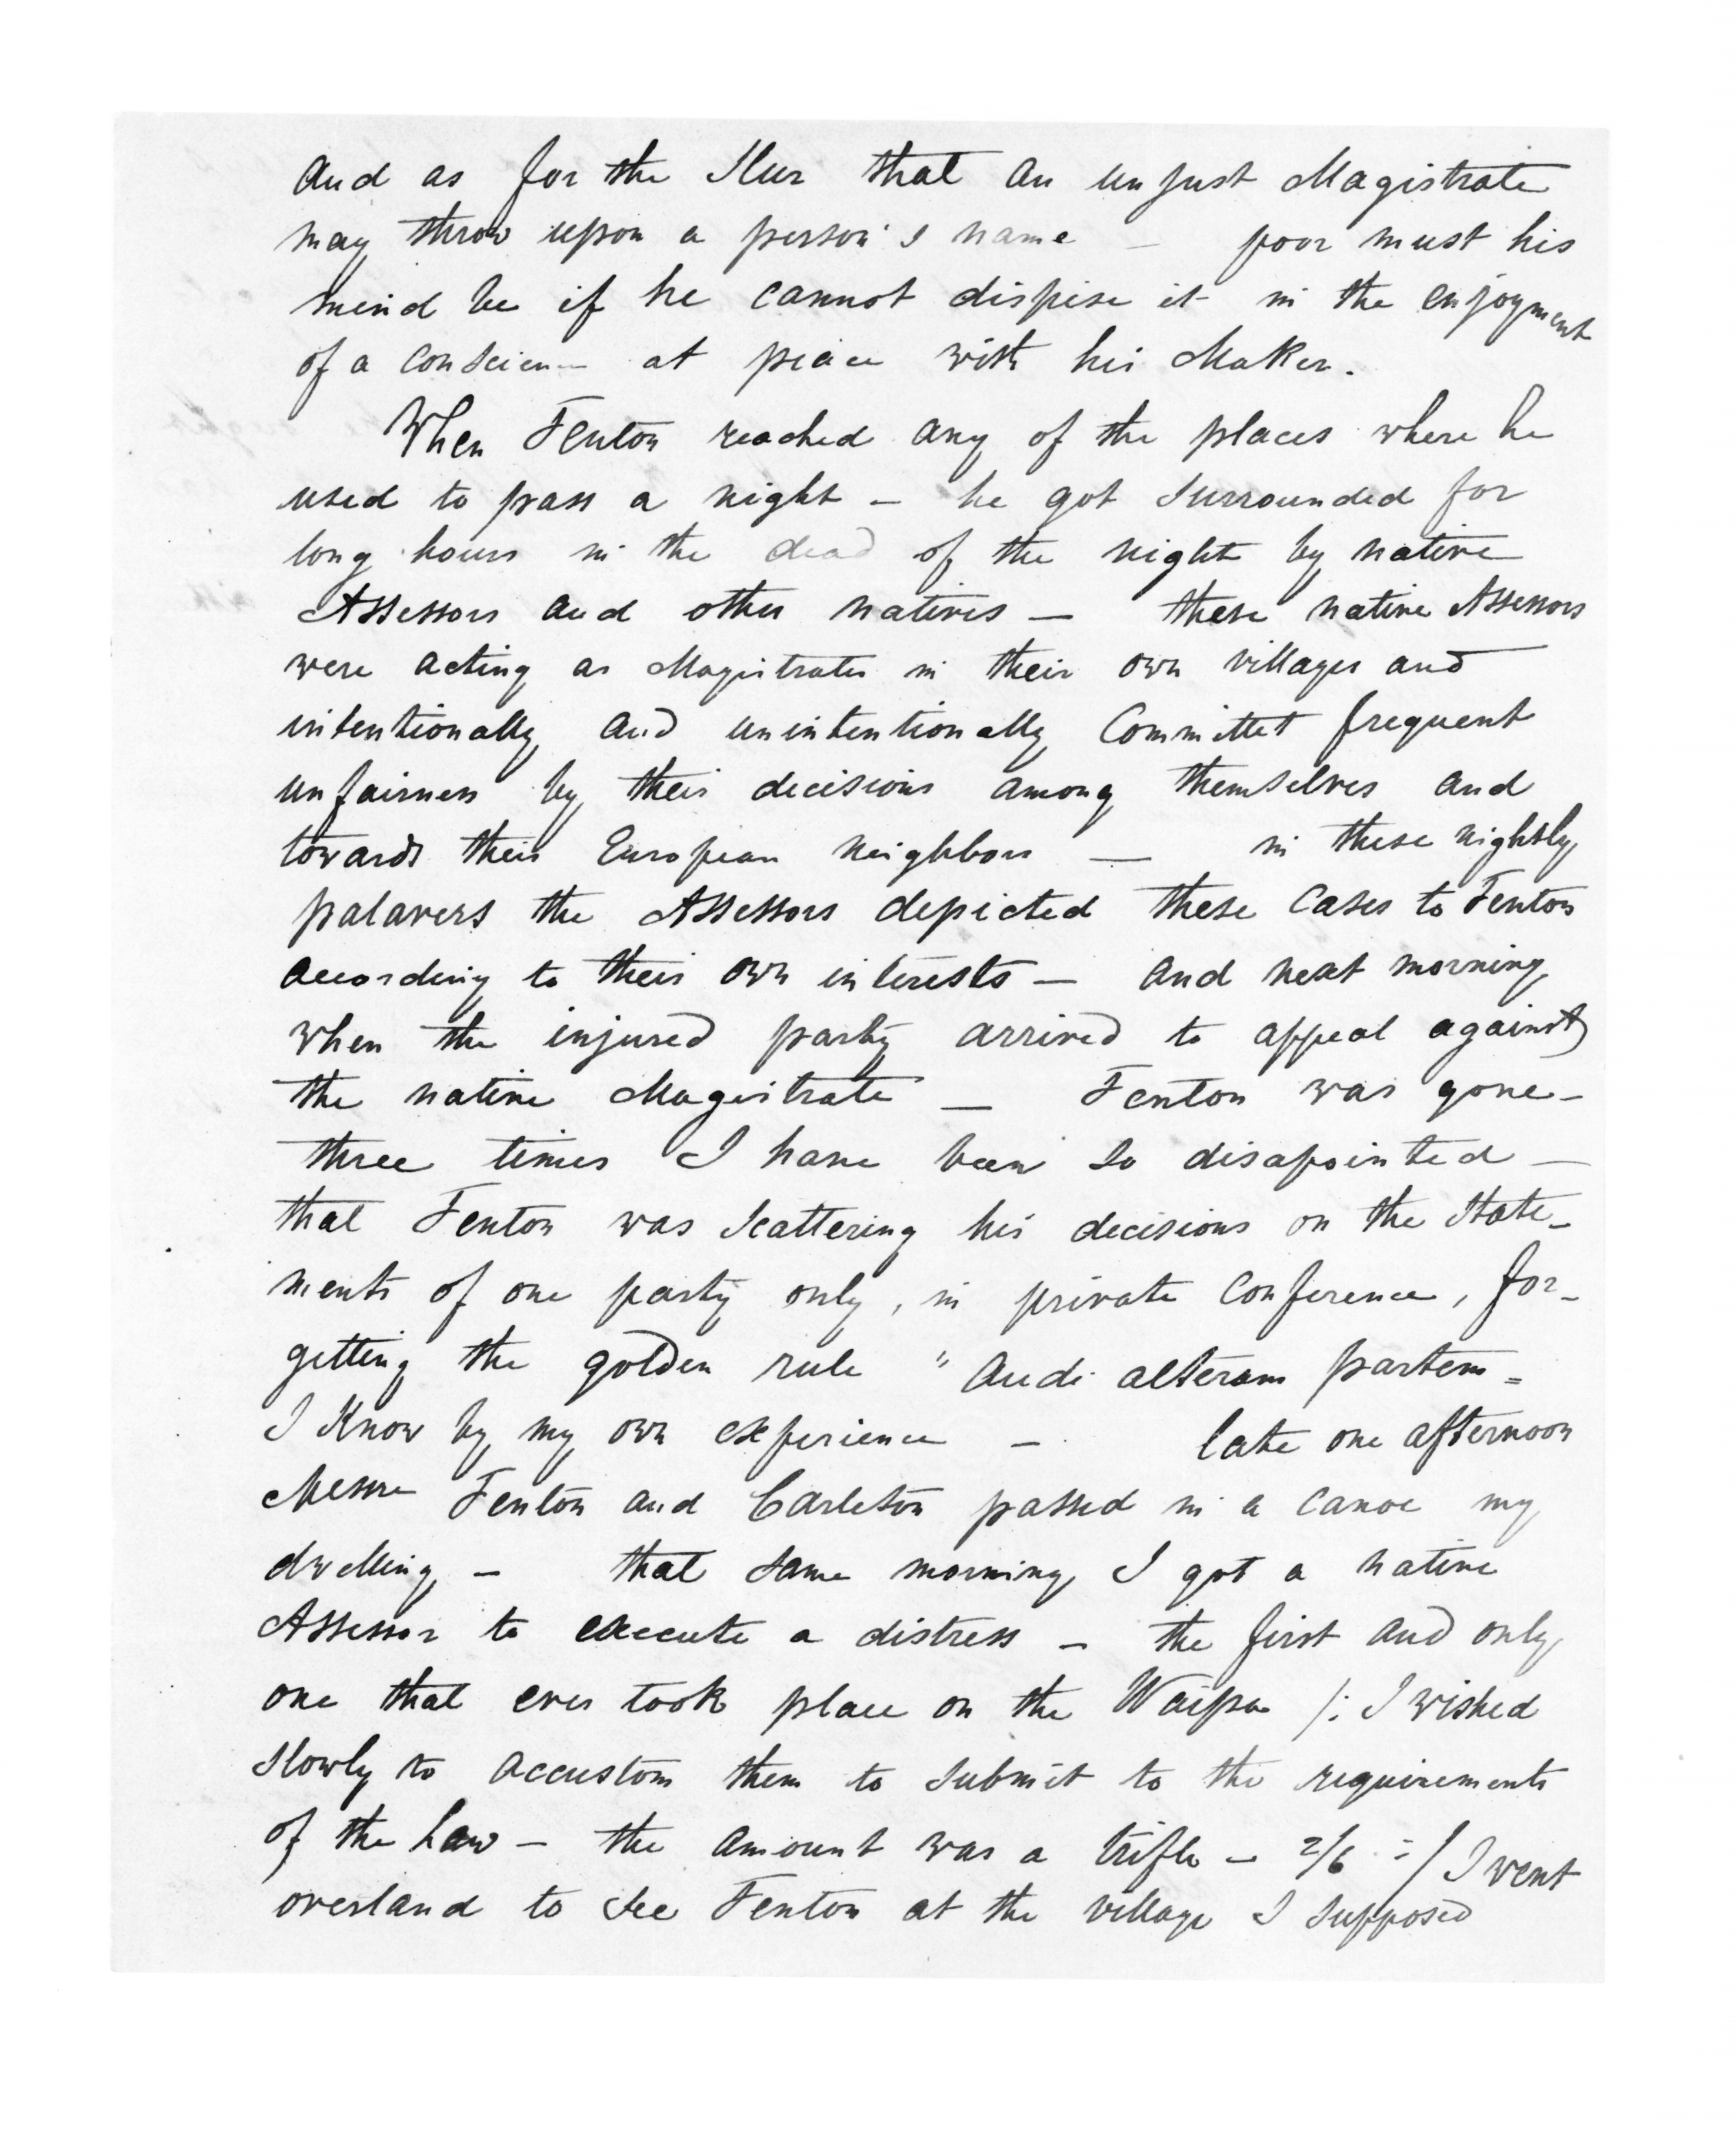 And as for the slur that an unjust Magistrate
may throw upon a person's name — poor must his
meind be if he cannot dispise it in the enjoyment
of a conscience at peace with his Maker.
When Fenton reached any of the places where he
used to pass a night — he got surrounded for
long hours in the dead of the night by native
Assessors and other natives — these native Assessors
were acting as Magistrates in their own villages and
intentionally and unintentionally committet frequent
unfairness by their decisions among themselves and
towards their European neighbors — in these nightly
palavers the Assessors depicted these cases to Fenton
according to their own interests — and next morning
when the injured party arrived to appeal against
the native Magistrate — Fenton was gone —
three times I have been so disapointed —
that Fenton was scattering his decisions on the state-
ments of one party only, in private conference, for-
getting the golden rule " Audi alteram partem =
I know by my own experience — late one afternoon
Messrs Fenton and Carleton passed in a canoe my
dwelling — that same morning I got a native
Assessor to execute a distress — the first and only
one that ever took place on the Waipa /: I wished
slowly to accustom them to submit to the requirements
of the Law — the amount was a trifle — 2/6 :/ I went
overland to see Fenton at the village I supposed